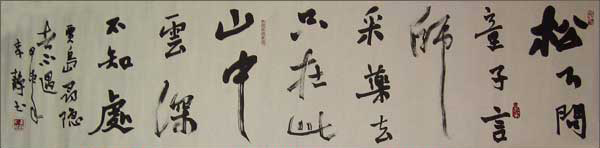 松下問
童子言
師
采藥去
只在此
山中
雲深
不知處
賈島尋隐
者不遇